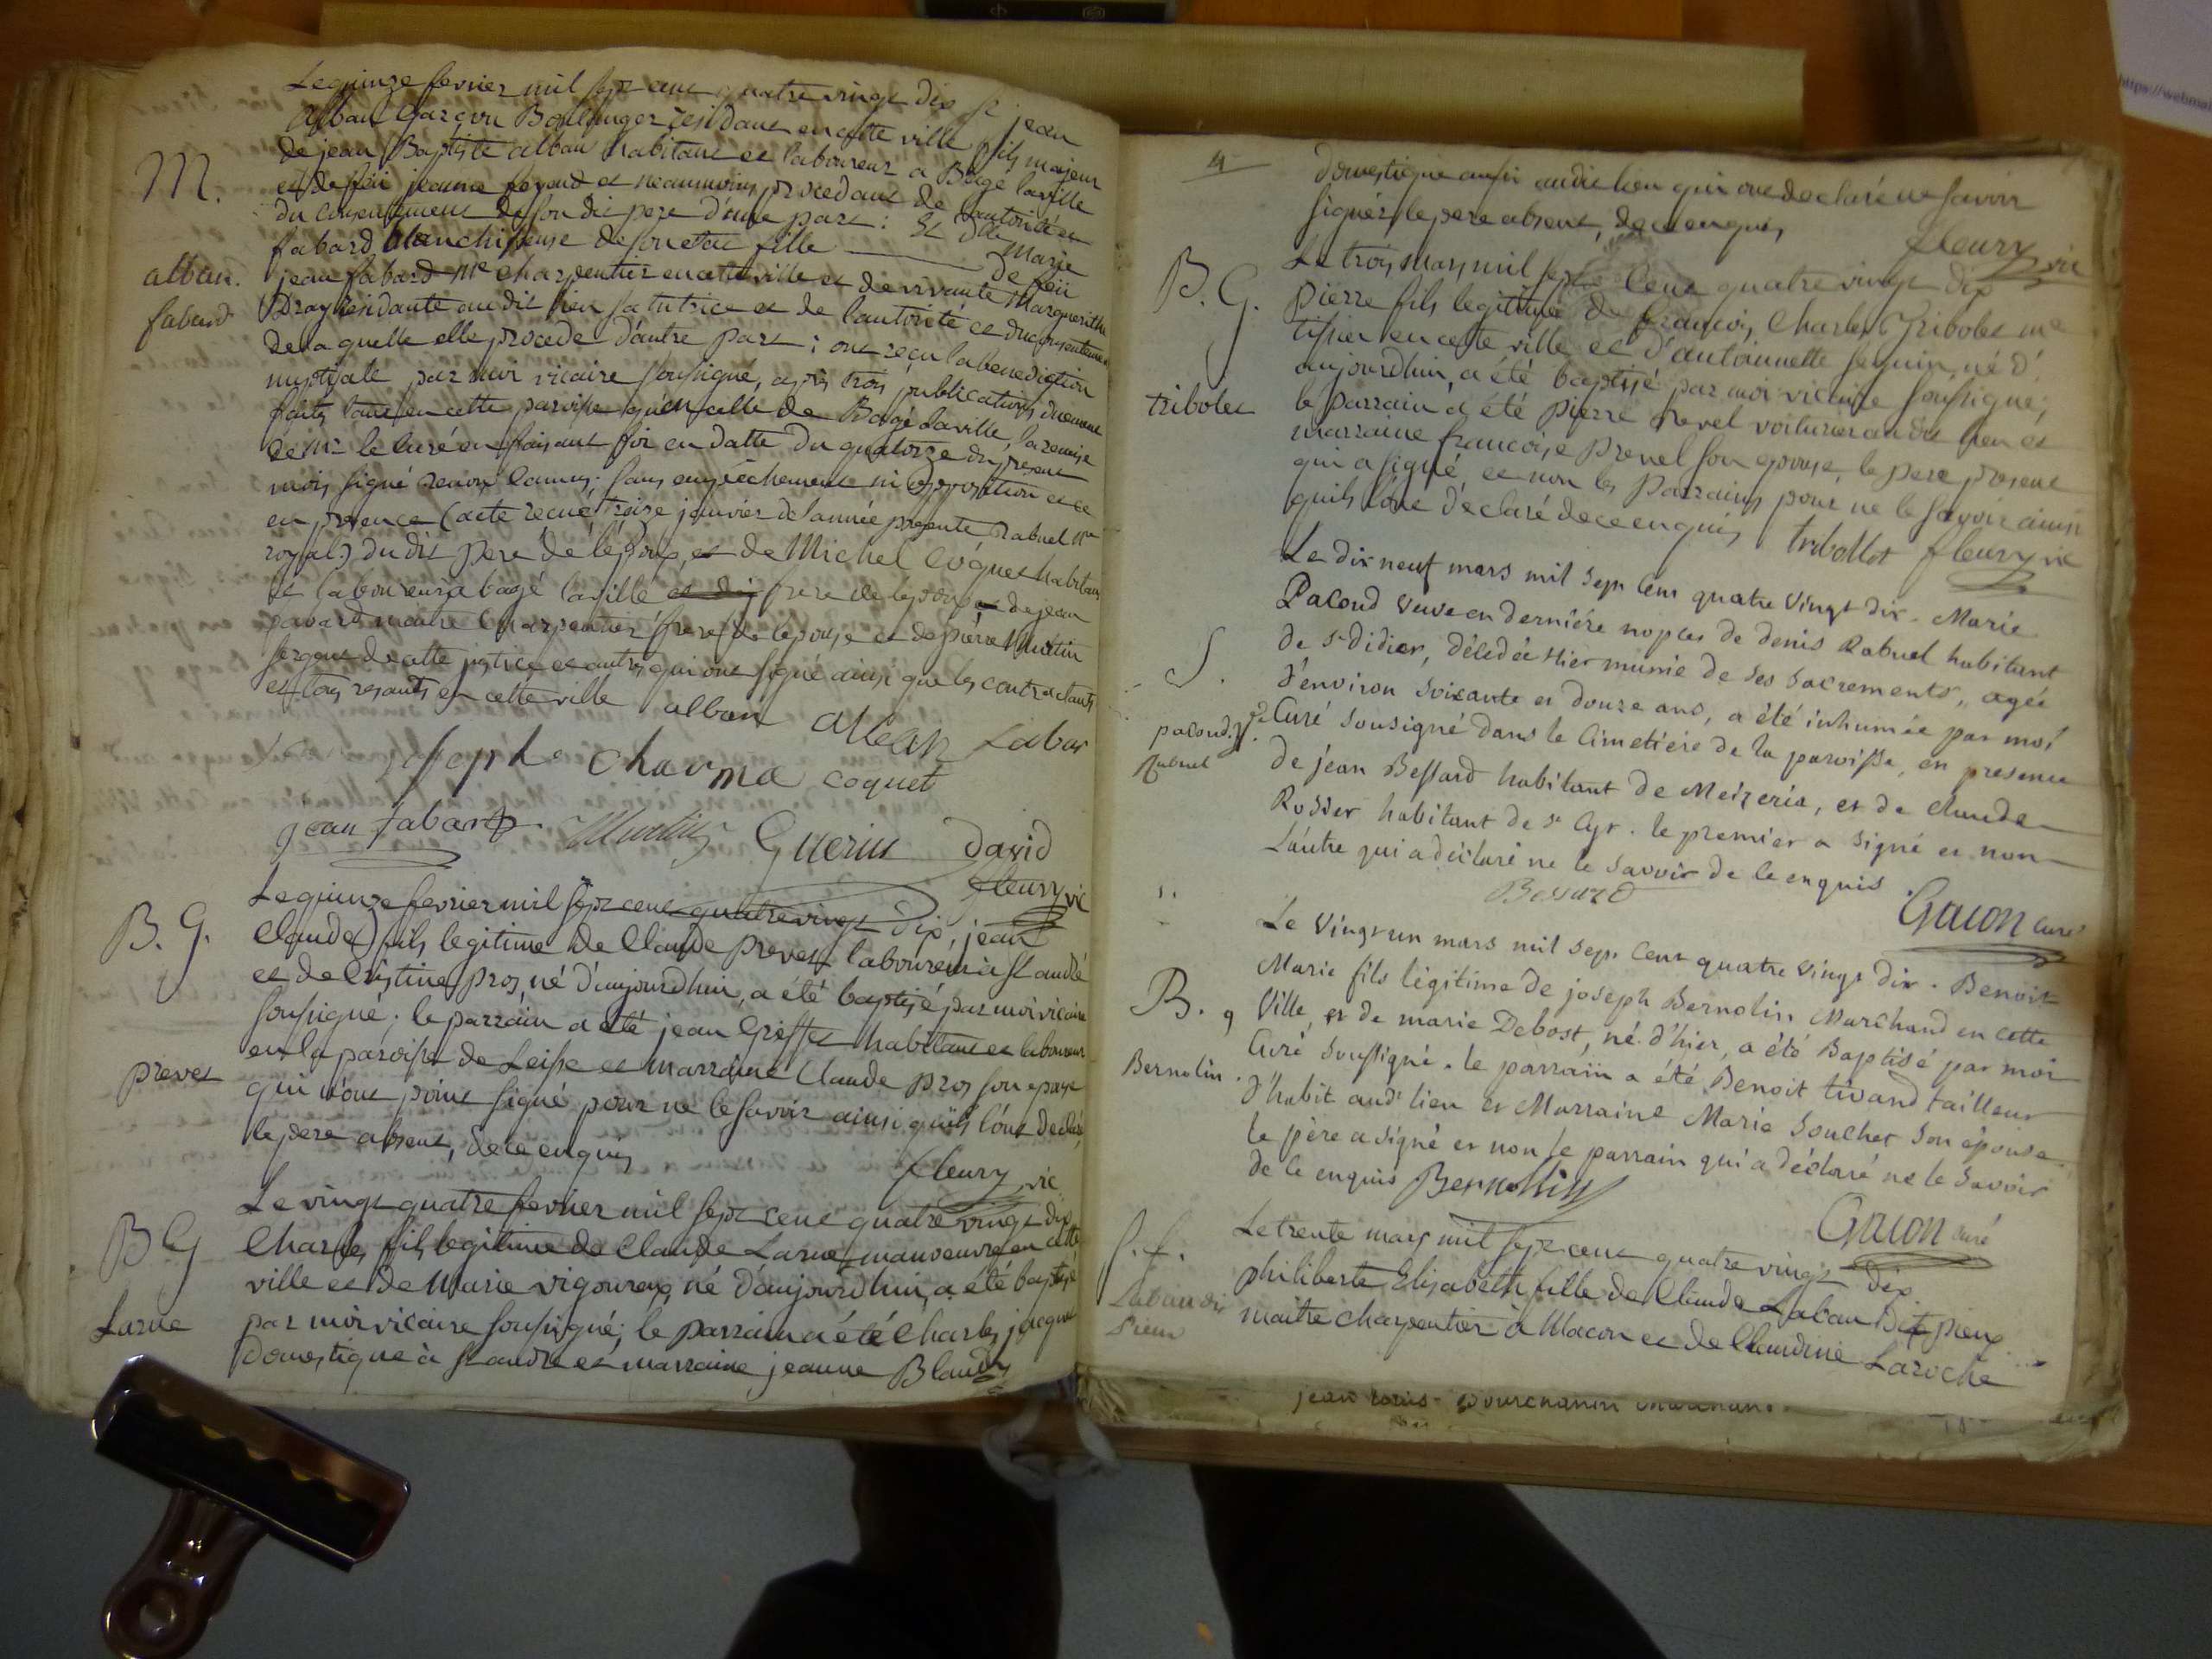 Le quinze fevrier mil sept cent quatre vingt dix Sr jean
alban Garçon Boulanger residant en cette ville fils majeur
de jean Baptiste alban habitant et laboureur a Bagé laville
et de feüe jeanne feyoud et neanmoins procedant de l'autorité et
du consentement de son dit pere d'une part : Et Dlle Marie
fabard blanchisseuse de son etat fille de feü
M.
alban.
fabard
jean fabard me charpentier en cette ville et de vivante Marguerithe
Dray residante audit lieu sa tutrice et de l'autorité et du consentement
de laquelle elle procede d'autre part ; ont reçu la benediction
nuptiale par moi vicaire soussigné, après trois publications duement
faites tant en cette paroisse qu'en celle de Bagé laville, la remise
de Mr le curé en faisant foi en datte du quatorze du present
mois signé ; sans empéchement ni opposition et ce
en presence (acte recue treize janvier de l'année presente Rabuel Nre
royal) du dit pere de l'époux, et de Michel Cóquet habitant
et laboureur a bagé laville et de frere de lepoux et de jean
favard maitre charpentier frere de l'epouse et de pierre Mutin
sergent de cette justice et autres qui ont signé ainsi que les contractants
et tous resants en cette ville alban alban fabar
joseph charma coquet
jean fabard Mutin Guerin David
fleury vic
B. G.
prevet
Le quinze fevrier mil sept cent quatre vingt dix, jean
Claude fils legitime de Claude prevet laboureur à St andré
et de Cristine pros, né d'aujourdhui, a été baptisé par moi vicaire
soussigné ; le parrain a été jean Greffet habitant et laboureur
en la paroisse de Leisse et marraine Claude pros son epouse
qui n'ont point signé pour ne le savoir ainsi qu'ils l'ont declaré,
le pere absent, de ce enquis
fleury vic.
B G
Larue
Le vingt quatre fevrier mil sept cent quatre vingt dix
Charles fils legitime de Claude Larue manoeuvre en cette
ville et de Marie vigoureux, né d'aujourdhui, a été baptisé
par moi vicaire soussigné ; le parrain a été Charles jacquet
domestique à St andré et marraine jeanne Blandy
4
domestique aussi audit lieu qui ont declaré ne savoir
signer, le pere absent, de ce enquis
fleury vic
B. G.
tribolet
Le trois mars mil sept cent quatre vingt dix
pierre fils legitime de françois Charles Tribolet me
tissier en cette ville et d'antoinnette seguin, né d'
aujourdhui, a été baptisé par moi vicaire soussigné ;
le parrain a été pierre prevel voiturier audit lieu et
marraine françoise prevel son epouse, le pere present
qui a signé, et non les parrains pour ne le savoir ainsi
quils l'ont déclaré de ce enquis tribollet fleury vic
S.
palond. V.
Rabuel
Le dix neuf mars mil sept cent quatre vingt dix. Marie
Palond veuve en derniére noples de denis Rabuel habitant
de st didier, décédée hier munie de ses sacrements, agée
d'environ soixante et douze ans, a été inhumée par moi
Curé sousigné dans le Cimetiére de la paroisse, en presence
de jéan Bessard habitant de Meizeria, et de claude
Rosset habitant de st Cyr. le premier a signé et non
L'autre qui a déclaré ne le savoir de ce enquis.
Bessard
Gacon curé
B. g
Bernolin.
Le Vingt un mars mil sept cent quatre vingt dix. Benoit
Marie fils légitime de joseph Bernolin Marchand en cette
Ville, et de marie Debost, né d'hier, a été Baptisé par moi
Curé soussigné. le parrain a été Benoit tivand tailleur
d'habit aud' lieu et Marraine Marie Souchet son épouse
le père a signé et non le parrain qui a déclaré ne le savoir
de ce enquis Bernollin
Gacon curé
S. f.
Laban dit
Pieux
Le trente mars mil sept cent quatre vingt dix
philiberte Elisabeth fille de Claude Laban dit pieux
maitre charpentier à Macon et de Claudine Laroche